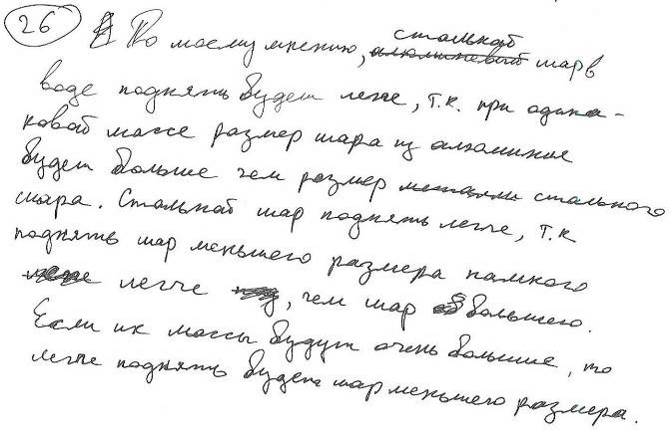 26 По моему мнению, стальной алюминевый шар в
воде поднять будет легче, т.к. при одина-
ковой массе размер шара из алюминия
будет больше чем размер стального
шара. Стальной шар поднять легче, т.к
поднять шар меньшего размера намного
легче, чем шар большего.
Если их массы будут очень большие, то
легче поднять будет шар меньшего размера.